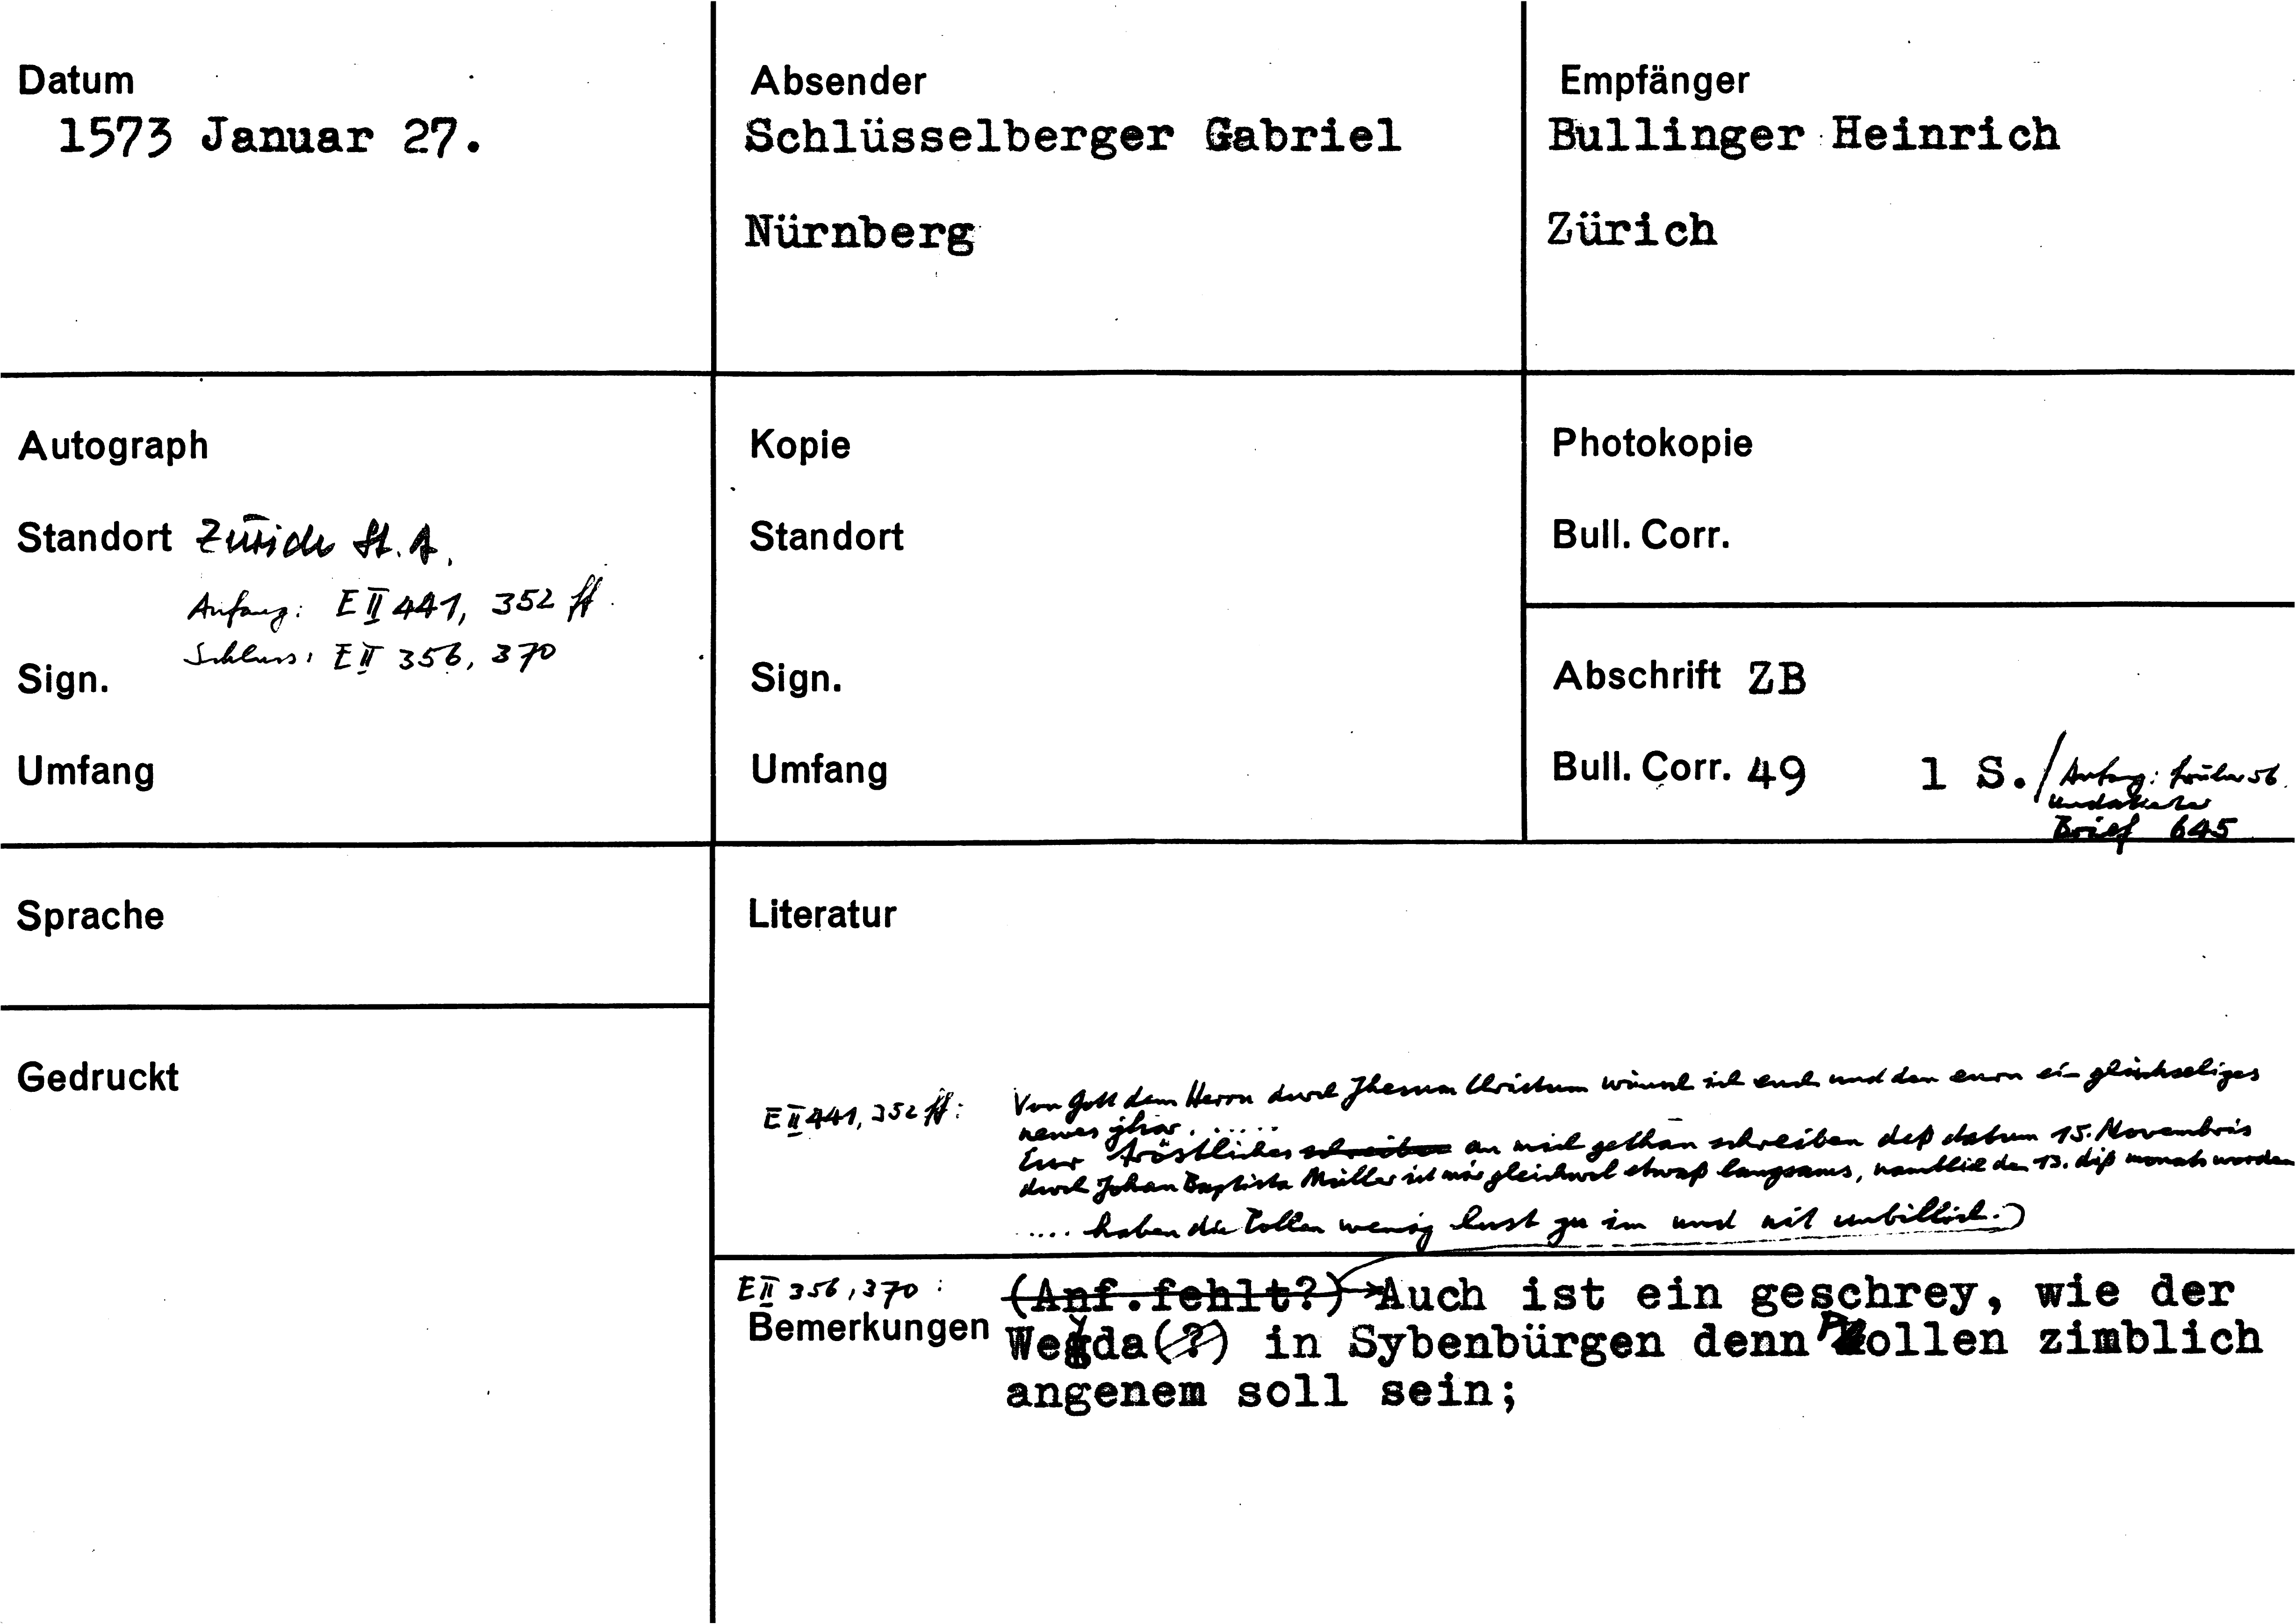 Datum
1573 Januar 27.
Absender
Schlüsselberger Gabriel
Nürnberg
Empfänger
Bullinger Heinrich
Zürich
Autograph
Standort Zürich St. A.
Anfang: E II 441, 352 ff.
Schluss: E II 356, 370
Sign.
Umfang
Kopie
Standort
Sign.
Umfang
Photokopie
Bull. Corr.
Abschrift ZB
Bull. Corr. 49 1 S./ Anfang: früher 56.
undatierter
Brief 645
Sprache
Gedruckt
Literatur
E II 441, 352 ff: Von Gott dem Herrn durch Jhesum Christum wünsch ich euch und den euren ein glückseliges
neues jhar. .....
Eur tröstliches schreiben an mich gethan schreiben deß datum 15. Novembris
durch Johan Baptista Müller ist mir gleichwol etwaß langsams, namblich den 13. diß monats worden
.... haben die Pollen wenig lust zu im und nit unbillich.)
E II 356, 370: (Anf. fehlt?) Auch ist ein geschrey, wie der
Bemerkungen Weyda(?) in Sybenbürgen denn Pollen zimblich
angenem soll sein;